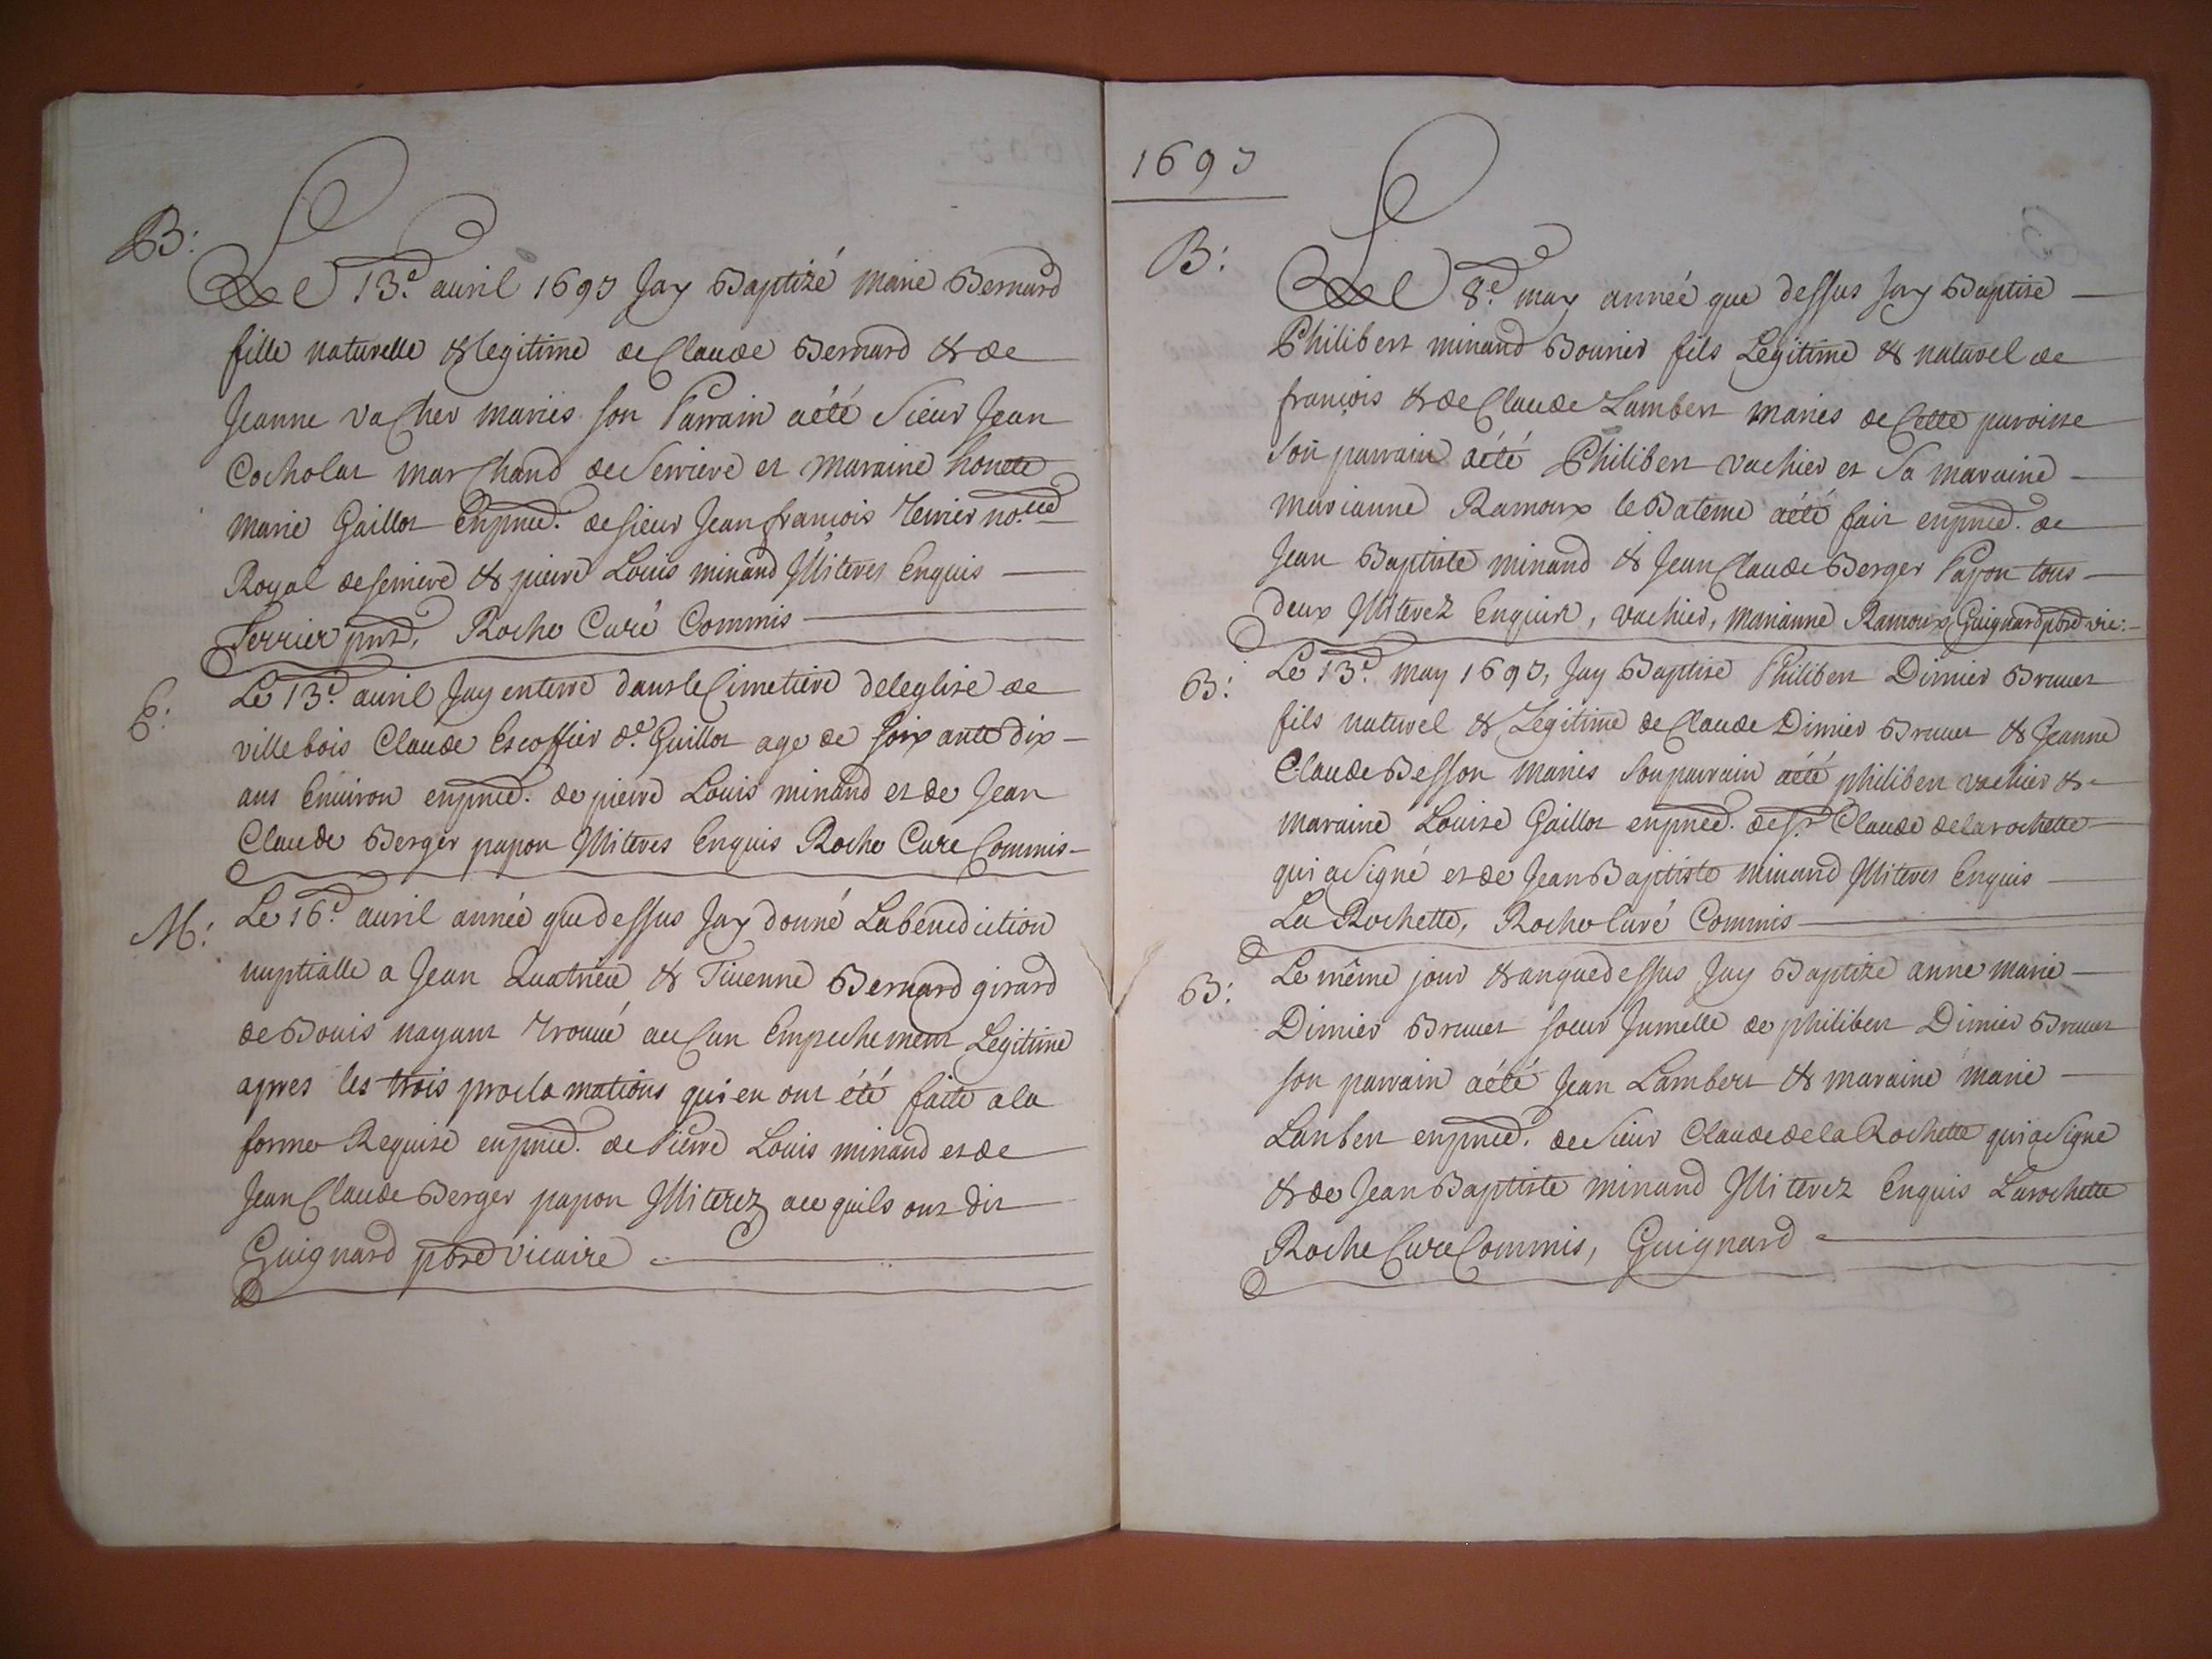 B:
Le 13.e auril 1693 Jay Baptizé marie Bernard
fille naturelle & legitime de Claude Bernard & de
Jeanne vacher mariés son Parrain aété Sieur Jean
Cocholat marchand de Serriere et maraine honete
marie Gaillot enpnce. de sieur Jean françois Terrier no.re
Royal de serriere & pierre Louis minand Illiteres Enquis
Terrier pnt, Roche Curé Commis
E:
Le 13.e auril Jay enterré dans le Cimetiere deleglise de
villebois Claude Escoffier d.t Guillot age de soixante dix
ans Enuiron enpnce. de pierre Louis minand et de Jean
Claude Berger papon Illiteres Enquis Roche Cure Commis
M:
Le 16.e auril année que dessus Jay donné Labenediction
nuptialle a Jean Quatrieu & Tiuenne Bernard girard
de Bouis nayant trouué aucun Empechement Legitime
apres les trois proclamations qui en ont été faite ala
forme Requise enpnce. de Pierre Louis minand et de
Jean Claude Berger papon Illiterez ace quils ont dit
Guignard pbre vicaire
1693
B:
Le 8.e may année que dessus Jay Baptise
Philibert minand Bourier fils Legitime & naturel de
françois & de Claude Lambert mariés de Cette paroisse
Son parrain aété Philibert vachier et Sa maraine
marianne Ramoux le Bateme aété fait enpnce. de
Jean Baptiste minand & Jean Claude Berger Papon tous
deux Illiterez Enquir, vachier, marianne Ramoux, Guignard pbre vic:
B:
Le 13.e may 1693, Jay Baptise Philibert Dimier Bruuet
fils naturel & Legitime de Claude Dimier Bruuet & Jeanne
Claude Besson mariés Son parrain aété philibert vachier &
maraine Louise Gaillot enpnce. de S.r Claude delarochette
qui a Signé et de Jean Baptiste minand Illiteres Enquis
La Rochette, Roche Curé Commis
B:
Le même jour & anquedessus Jay Baptize anne marie
Dimier Bruuet soeur Jumelle de philibert Dimier Bruuet
son parrain aété Jean Lambert & maraine marie
Lanbert enpnce. de Sieur Claude de la Rochette qui a Signe
& de Jean Baptiste minand Illiterez Enquis Larochette
Roche Cure Commis, Guignard